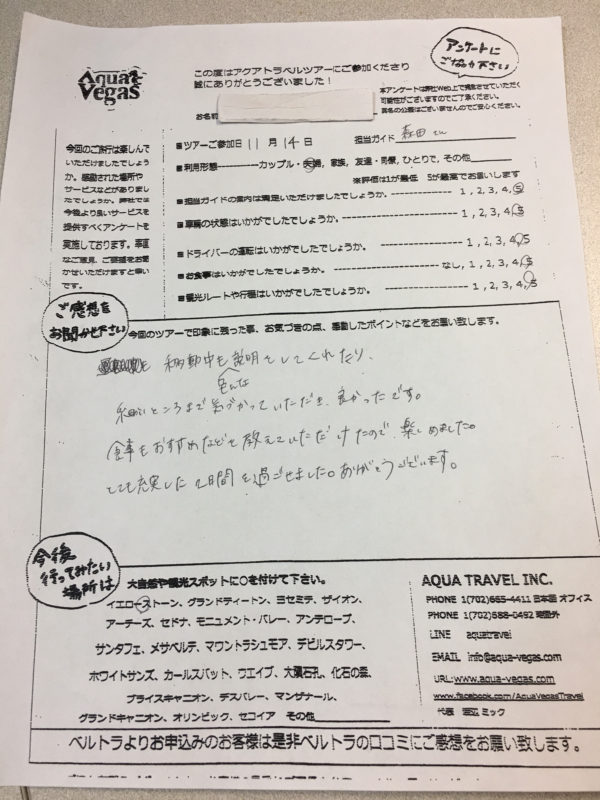 Aqua Vegas
この度はアクアトラベルツアーにご参加くださり
誠にありがとうございました！
アンケートに
ご協力下さい
本アンケートは弊社Web上で掲載させていただく
可能性がございますのでご了承ください。
実名の公表はございませんのでご安心ください。
お名前
今回のご旅行は楽しんで
いただけましたでしょう
か。感動された場所や
サービスなどがありまし
たでしょうか。弊社では
今後より良いサービスを
提供すべくアンケートを
実施しております。率直
なご意見、ご要望をお聞
かせいただけますと幸い
です。
■ツアーご参加日 11月 14日 担当ガイド 森田さん
■利用形態----------カップル・夫婦, 家族, 友達・同僚, ひとりで, その他
※評価は1が最低 5が最高でお願いします
■担当ガイドの案内は満足いただけましたでしょうか。 ---------- 1, 2, 3, 4, 5
■車輌の状態はいかがでしたでしょうか。 ---------- 1, 2, 3, 4, 5
■ドライバーの運転はいかがでしたでしょうか。 ---------- 1, 2, 3, 4, 5
■お食事はいかがでしたでしょうか。 ---------- なし, 1, 2, 3, 4, 5
■観光ルートや行程はいかがでしたでしょうか。 ---------- 1, 2, 3, 4, 5
ご感想を
お聞かせ下さい
今回のツアーで印象に残った事、お気づきの点、感動したポイントなどをお願い致します。
移動中も色んな説明をしてくれたり、
細かいところまで気づかっていただき、良かったです。
食事もおすすめなどを教えていただけたので、楽しめました。
とても充実した2日間を過ごせました。ありがとうございます。
今後
行ってみたい
場所は
大自然や観光スポットに○を付けて下さい。
イエローストーン、グランドティートン、ヨセミテ、ザイオン、
アーチーズ、セドナ、モニュメント・バレー、アンテロープ、
サンタフェ、メサベルデ、マウントラシュモア、デビルスタワー、
ホワイトサンズ、カールスバット、ウエイブ、大隕石孔、化石の森、
ブライスキャニオン、デスバレー、マンザナール、
グランドキャニオン、オリンピック、セコイア その他
AQUA TRAVEL INC.
PHONE 1(702)665-4411 日本語 オフィス
PHONE 1(702)588-0492 時間外
LINE aquatravel
EMAIL info@aqua-vegas.com
URL:www.aqua-vegas.com
www.facebook.com/AquaVegasTravel
代表 渡辺 ミック
ベルトラよりお申込みのお客様は是非ベルトラの口コミにご感想をお願い致します。